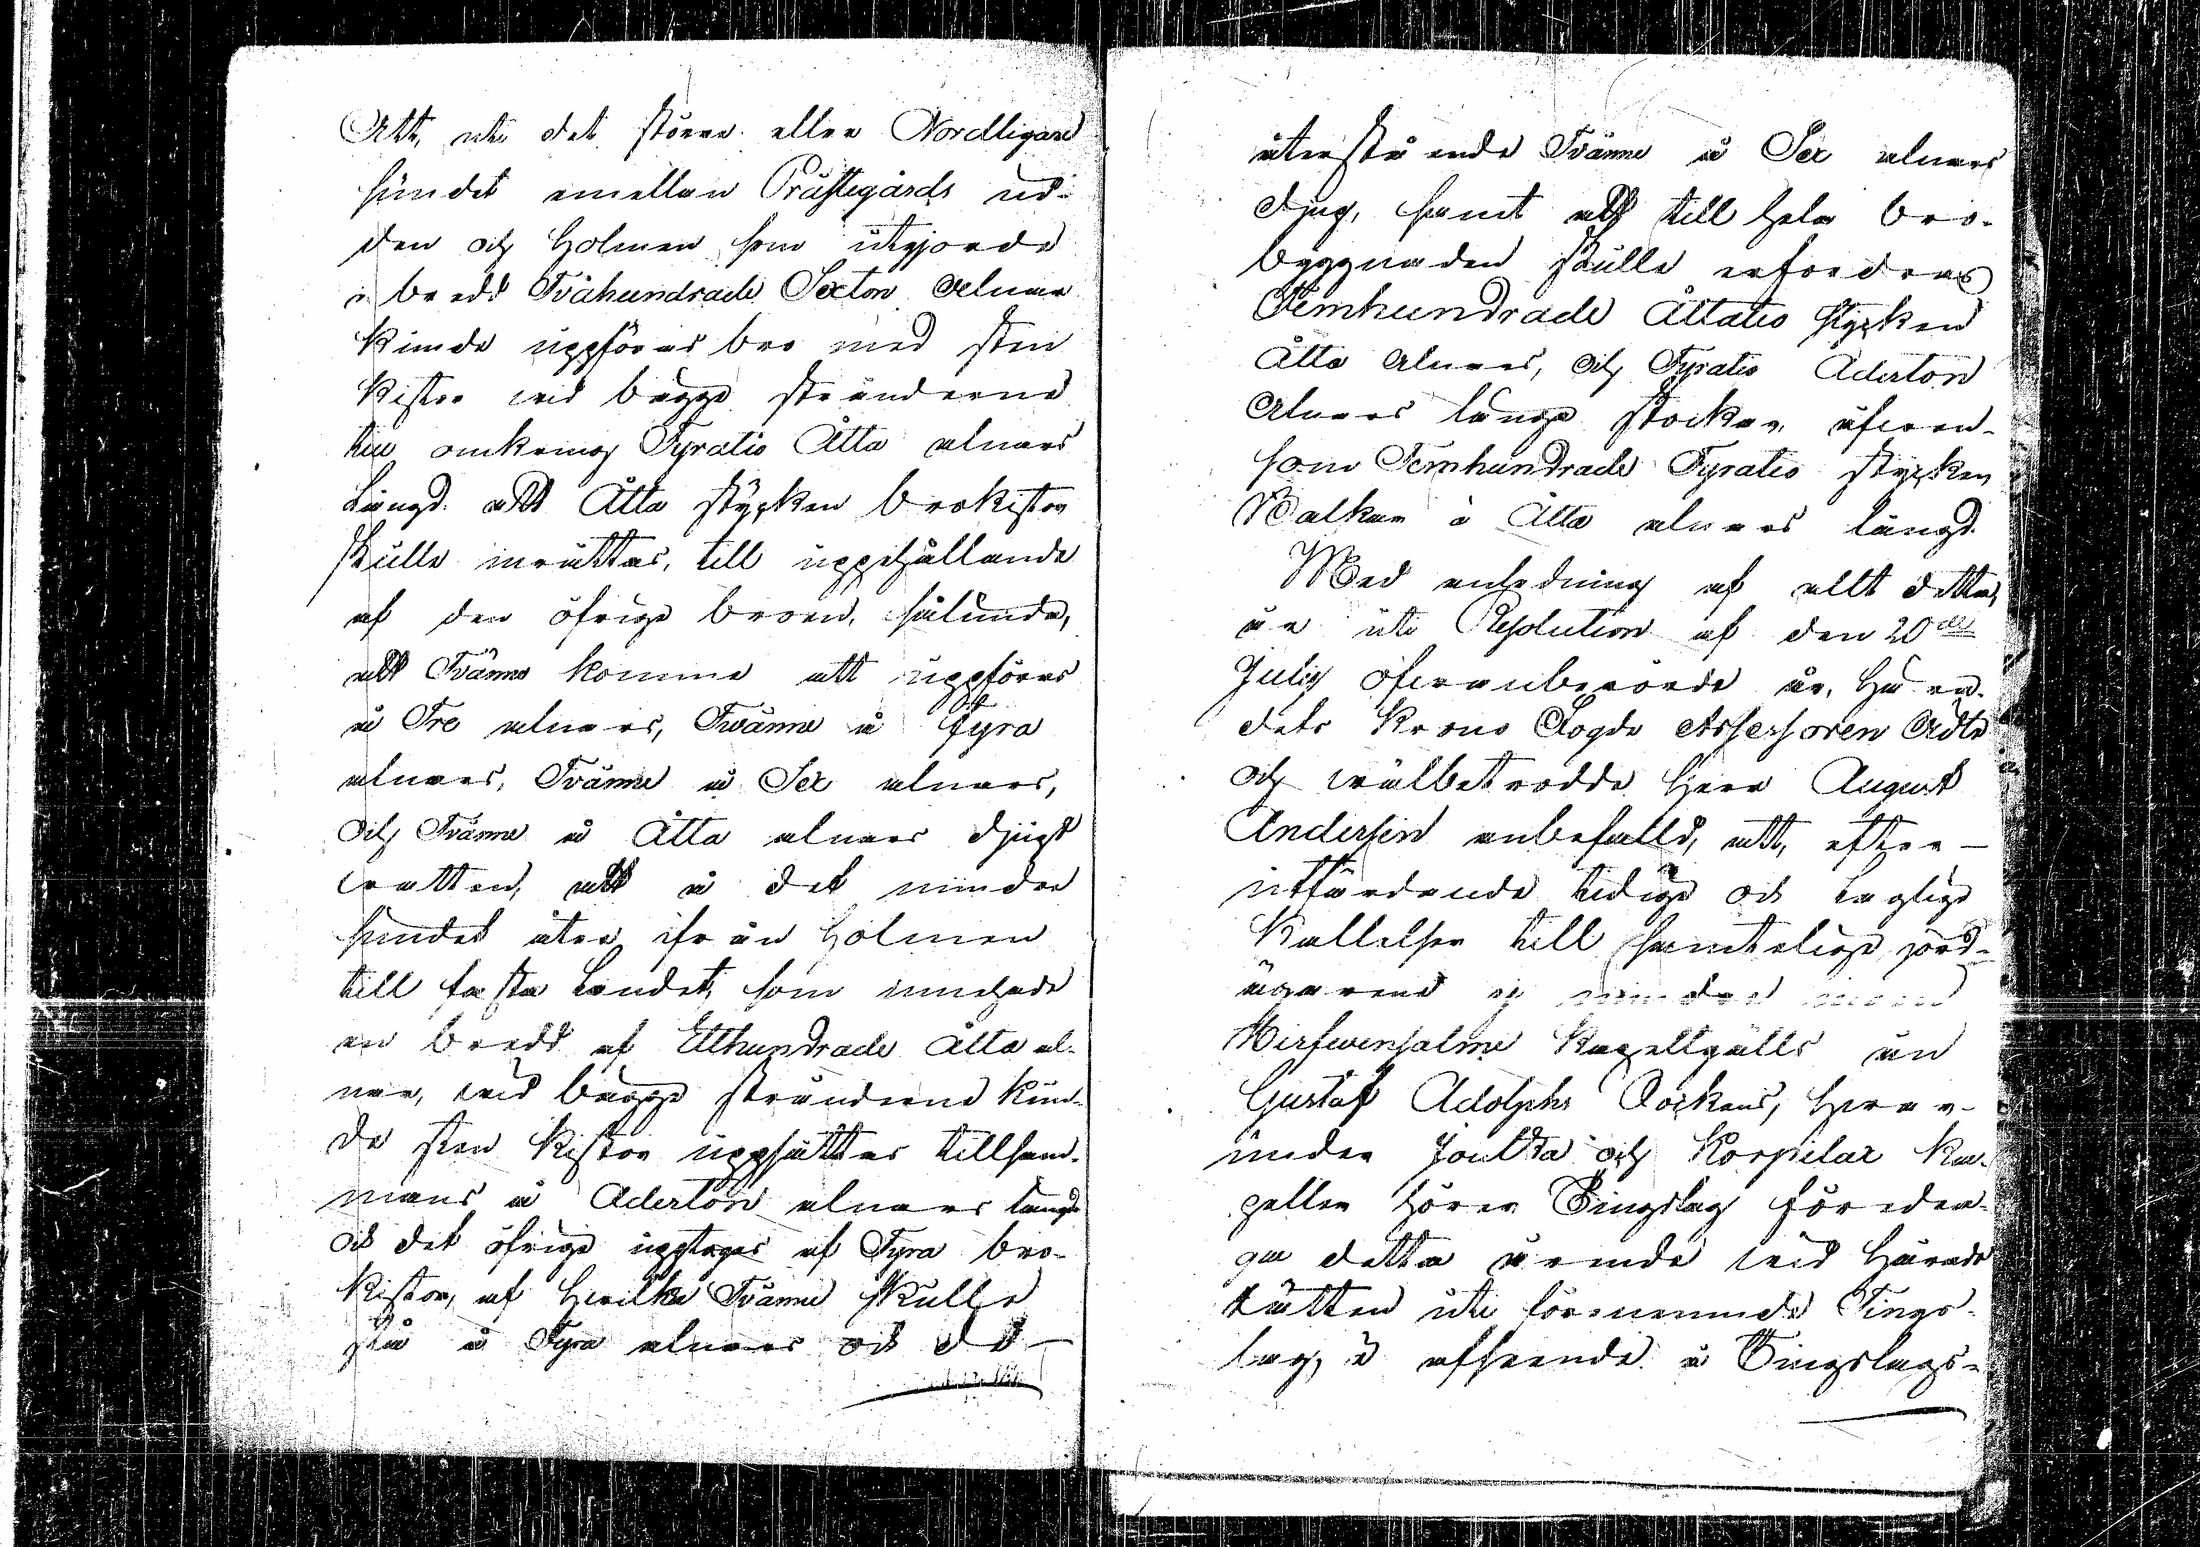 Att, uti det större eller Nordligare
sundet emellan Prästegårds ud-
den och Holmen som utgjorde
i bredd Tvåhundrade Sexton Alnar
kunde uppföras bro med sten
kistor vid bägge stränderne
till omkring Fyratio Åtta alnars
Längd. att Åtta stycken brokistor
skulle inrättas, till uppehållande
af den öfriga broen, sålunda,
att Tvänne komme att uppföras
å Tre alnars, Twänne å fyra
alnars, Tvänne å Sex alnars,
och Tvänne å Åtta alnars djupt
vatten, att å det mindre
sundet åter ifrån Holmen
till fasta Landet, som innehade
en bredd af Etthundrade Åtta al-
nar, vid bägge stränderne kun-
de sten kistor uppsättas tillsam-
mans å Aderton alnars längd
och det öfriga upptages af Fyra bro-
kistor, af hvilka Tvänne skulle
stå å Fyra alnars och de
återstående Tvänne å Sex alnars
djup, samt att till hela bro-
byggnaden skulle erfordras
Femhundrade Åttatio stycken
Åtta alnars, och Fyratio Aderton
Alnars långa stockar, äfven-
som Femhundrade Fyratio stycken
Balkar å Åtta alnars längd.
Med anledning af allt detta,
är uti Resolution af den 20de
July ofvanberörde år, Hära-
dets Krono Fogde Assessoren Adle
och wälbetrodde Herr August
Andersin anbefalld, att, efter
utfärdande tidige och laglige
Kallelser till samtelige jord-
ägarene ej mindre
Hirfvensalmi Kapellgälls än
Gustaf Adolphs Sockens, hvar-
under Joutsa och Korpilax Ka-
peller hörer Tingslag föredra-
ga detta ärende vid Härads
Rätten uti förenämnde Tings-
lag, i afseende å Tingslags-